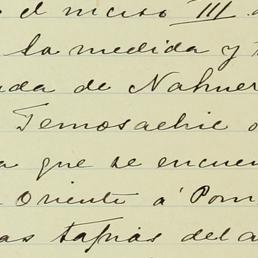 el inciso III.
la medida y
da de Nahuer
Temosachic
que se encuen
Oriente á Pon
as tapias del a